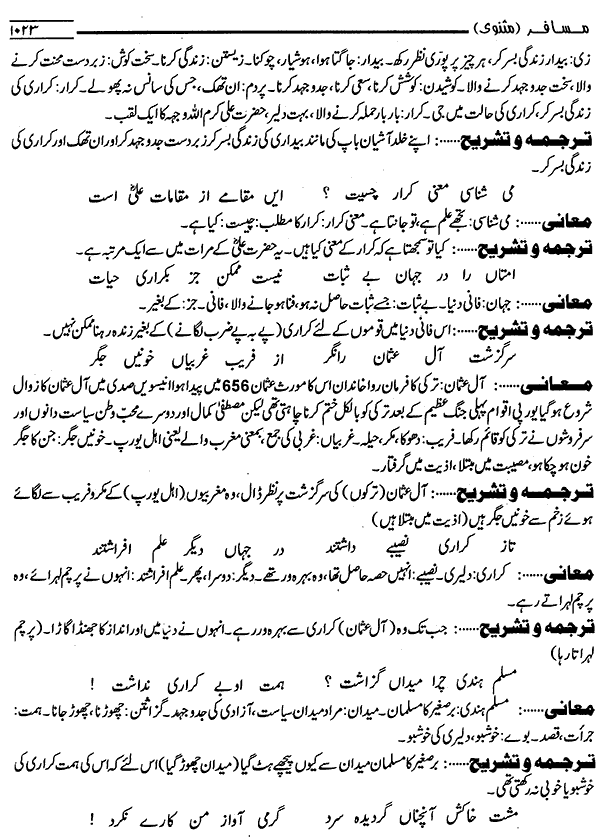 مسافر (مثنوی) ۱۰۲۳
زی: بیدار زندگی بسر کر، ہر چیز پر پوری نظر رکھ۔ بیدار: جاگتا ہوا، ہوشیار، چوکنا۔ زیستن: زندگی کرنا۔ سخت کوش: زبردست محنت کرنے
والا، سخت جدوجہد کرنے والا۔ کوشیدن: کوشش کرنا، سعی کرنا، جدوجہد کرنا۔ پردم: ان تھک، جس کی سانس نہ پھولے۔ کرار: کراری کی
زندگی بسر کر، کراری کی حالت میں جی۔ کرار: بار بار حملہ کرنے والا، بہت دلیر، حضرت علی کرم اللہ وجہہ کا ایک لقب۔
ترجمہ و تشریح......: اپنے خلد آشیان باپ کی مانند بیداری کی زندگی بسر کر زبردست جدوجہد کر اور ان تھک اور کراری کی
زندگی بسر کر۔
می شناسی معنی کرار چیست ؟ ایں مقامے از مقامات علیؓ است
معانی......: می شناسی: تجھے علم ہے، تو جانتا ہے۔ معنی کرار: کرار کا مطلب: چیست: کیا ہے۔
ترجمہ و تشریح......: کیا تو سمجھتا ہے کہ کرار کے معنی کیا ہیں۔ یہ حضرت علیؓ کے مراتب میں سے ایک مرتبہ ہے۔
امتاں را در جہان بے ثبات نیست ممکن جز بکراری حیات
معانی......: جہان: فانی دنیا۔ بے ثبات: جسے ثبات حاصل نہ ہو، فنا ہو جانے والا، فانی۔ جز: کے بغیر۔
ترجمہ و تشریح......: اس فانی دنیا میں قوموں کے لئے کراری (پے بہ پے ضرب لگانے) کے بغیر زندہ رہنا ممکن نہیں۔
سرگزشت آل عثمان رانگر از فریب غربیاں خونیں جگر
معانی......: آل عثمان: ترکی کا فرمان روا خاندان اس کا مورث عثمان 656 میں پیدا ہوا انیسویں صدی میں آل عثمان کا زوال
شروع ہو گیا یورپی اقوام پہلی جنگ عظیم کے بعد ترکی کو بالکل ختم کرنا چاہتی تھی لیکن مصطفیٰ کمال اور دوسرے محبّ وطن سیاست دانوں اور
سرفروشوں نے ترکی کو قائم رکھا۔ فریب: دھوکا، مکر، حیلہ۔ غربیاں: غربی کی جمع، بمعنی مغرب والے یعنی اہل یورپ۔ خونیں جگر: جن کا جگر
خون ہو چکا ہو، مصیبت میں مبتلا، اذیت میں گرفتار۔
ترجمہ و تشریح......: آل عثمان (ترکوں) کی سرگزشت پر نظر ڈال، وہ مغربیوں (اہل یورپ) کے مکر و فریب سے لگائے
ہوئے زخم سے خونیں جگر ہیں (اذیت میں مبتلا ہیں)
تاز کراری نصیبے داشتند در جہاں دیگر علم افراشتند
معانی......: کراری: دلیری۔ نصیبے: انہیں حصہ حاصل تھا، وہ بہرہ ور تھے۔ دیگر: دوسرا، پھر۔ علم افراشتند: انہوں نے پرچم لہرائے، وہ
پرچم لہراتے رہے۔
ترجمہ و تشریح......: جب تک وہ (آل عثمان) کراری سے بہرہ ور رہے۔ انہوں نے دنیا میں اور انداز کا جھنڈا گاڑا۔ (پرچم
لہراتا رہا)
مسلم ہندی چرا میداں گزاشت ؟ ہمت اوبے کراری نداشت !
معانی......: مسلم ہندی: برصغیر کا مسلمان۔ میدان: مراد میدان سیاست، آزادی کی جدوجہد۔ گزاشتن: چھوڑنا، چھوڑ جانا۔ ہمت:
جرأت، قصد۔ بوے: خوشبو، دلیری کی خوشبو۔
ترجمہ و تشریح......: برصغیر کا مسلمان میدان سے کیوں پیچھے ہٹ گیا (میدان چھوڑ گیا) اس لئے کہ اس کی ہمت کراری کی
خوشبو یا خوبی نہ رکھتی تھی۔
مشت خاکش آنچناں گردیدہ سرد گرمی آواز من کارے نکرد !